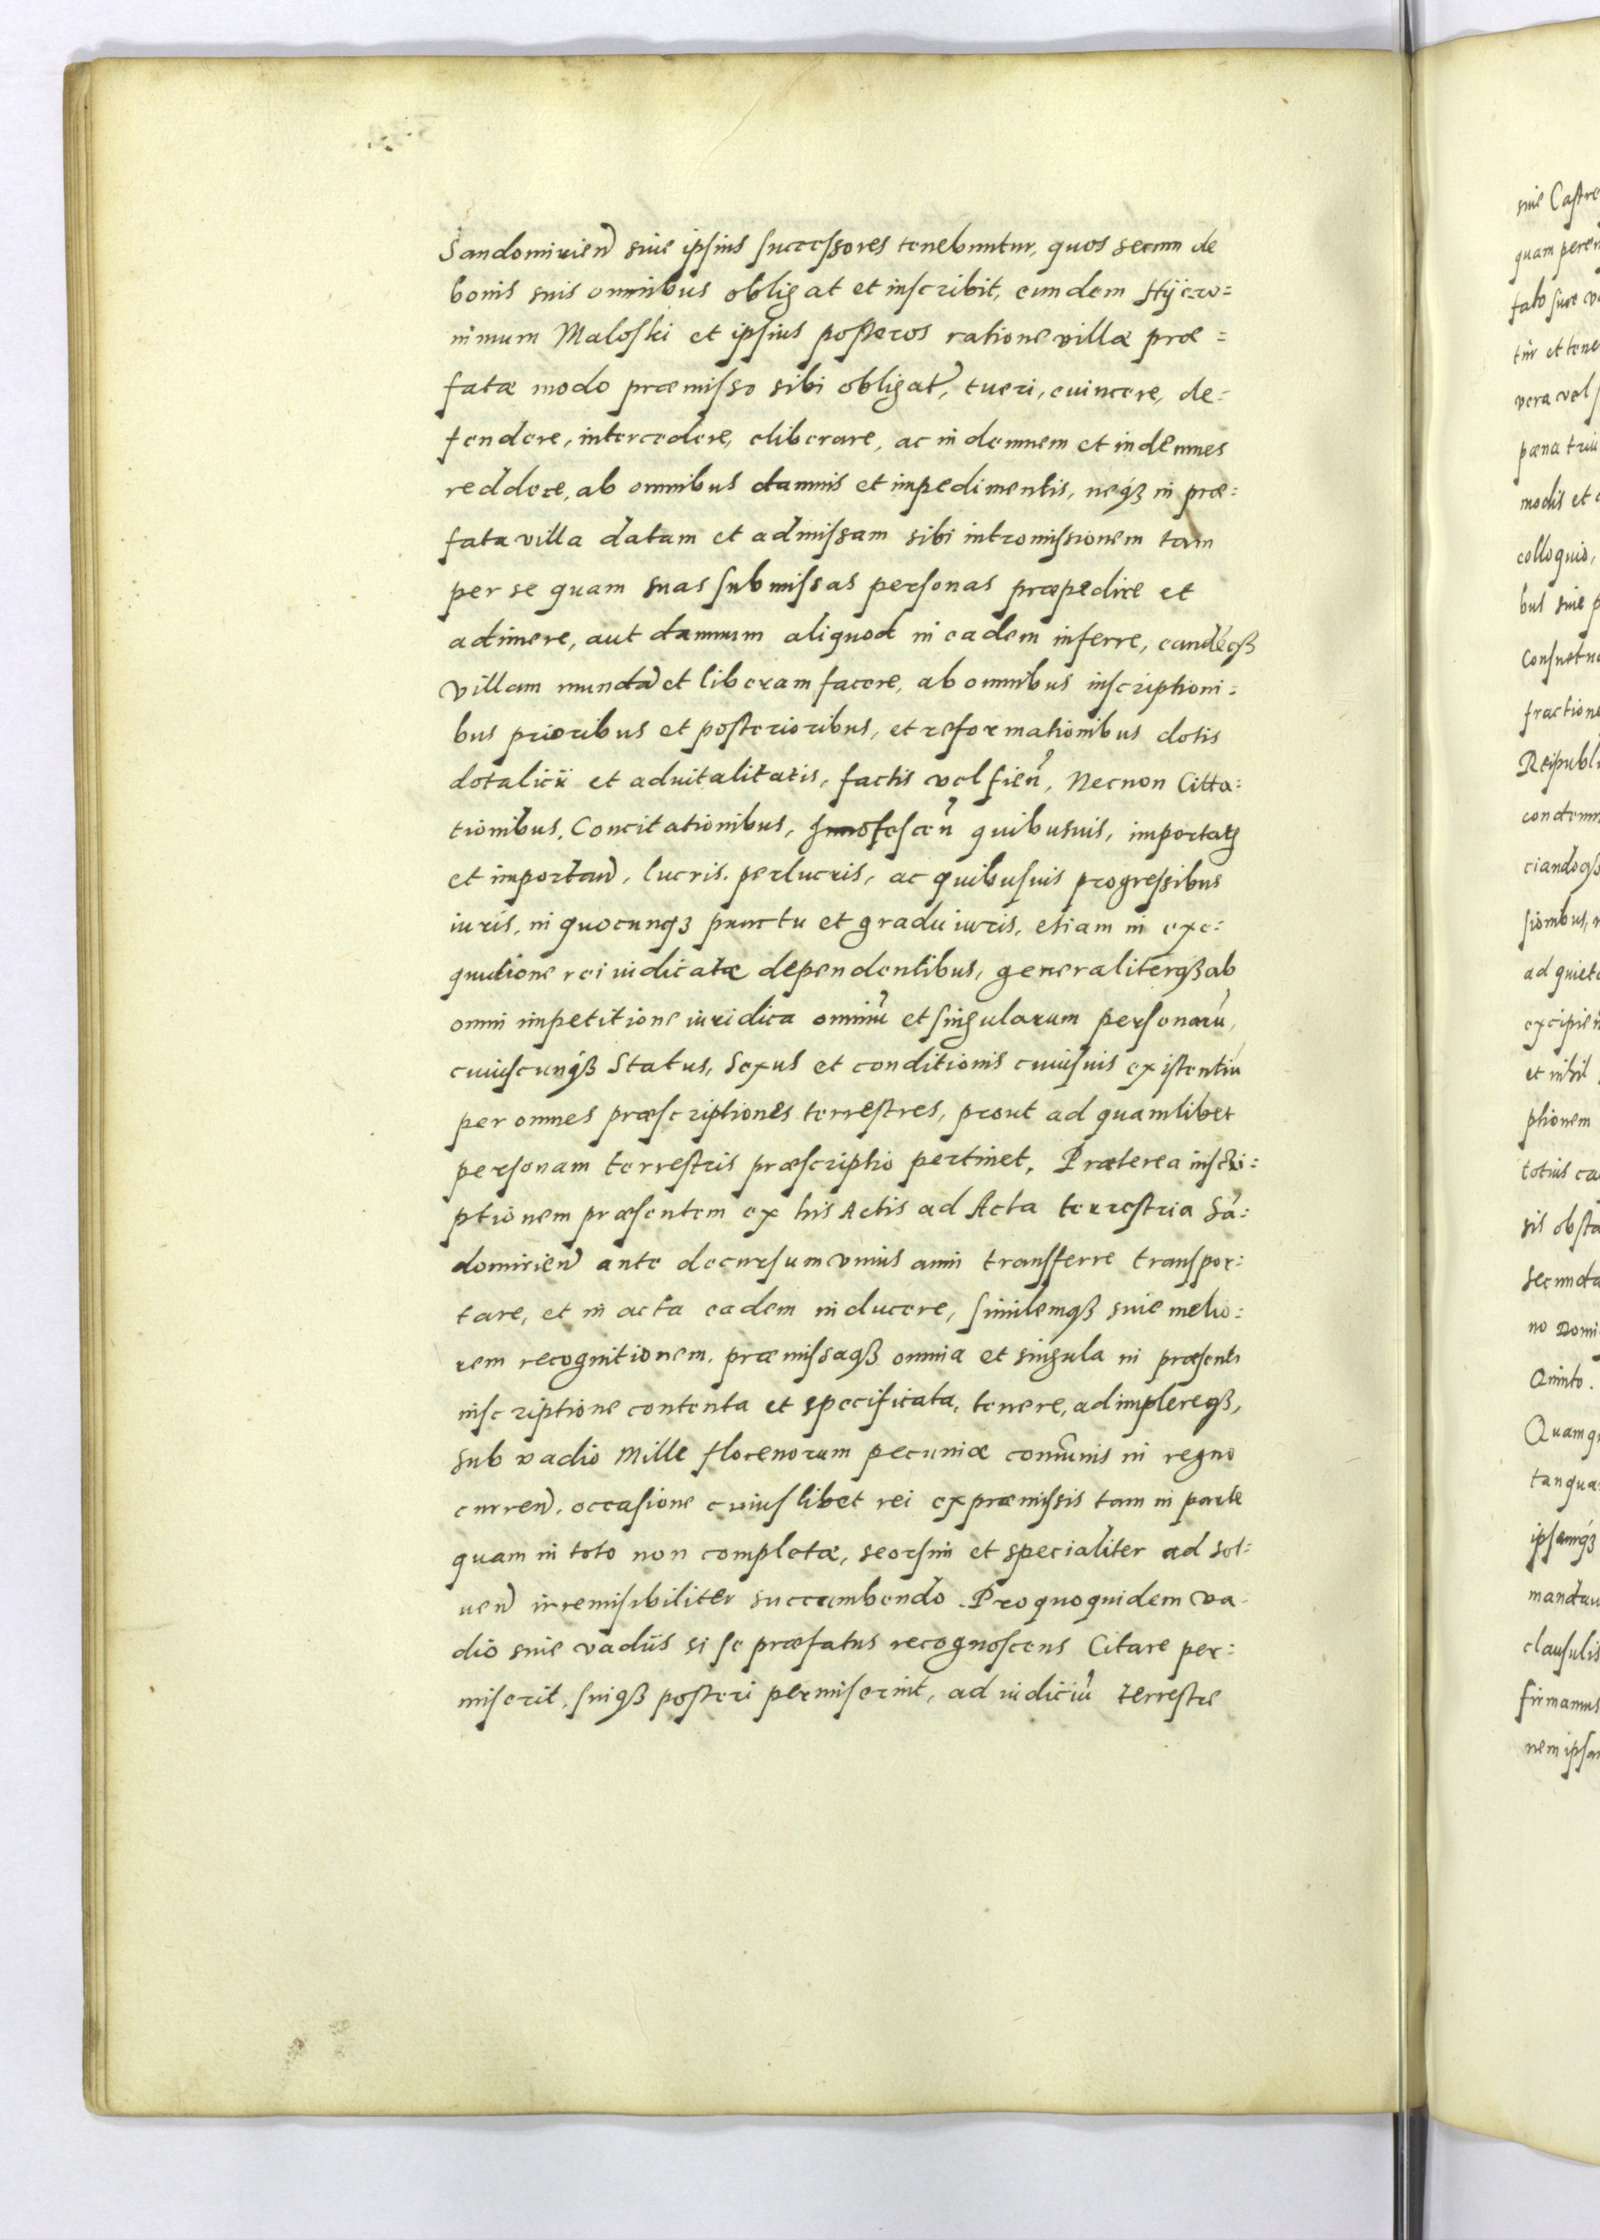 Sandomirien̄ siue ipsius successores tenebuntur, quos secum de
bonis suis omnibus obligat et inscribit, eundem Hÿero=
nimum Maloski et ipsius posteros ratione villæ præ=
fatæ modo præmisso sibi obligat̄, tueri, euincere, de=
fendere, intercedere, eliberare, ac indemnem et indemnes
reddere, ab omnibus damnis et impedimentis, neqꝫ in præ=
fata villa datam et admissam sibi intromissionem tam
per se quam suas submissas personas præpedire et
adimere, aut damnum aliquod in eadem inferre, eandēqꝫ
villam mundā et liberam facere, ab omnibus inscriptioni=
bus prioribus et posterioribus, et reformationibus dotis
dotalicii et aduitalitatis, factis vel fien̄, Necnon Citta=
tionibus, Concitationibus, quibusuis, importatꝫ
et importan̄, lucris, perlucris, ac quibusuis progressibus
iuris, in quocunqꝫ punctu et gradu iuris, etiam in exe=
quutione rei iudicatæ dependentibus, generaliterqꝫ ab
omni impetitione iuridica omniū et singularum personarū,
cuiuscunqꝫ Status, Sexus et conditionis cuiusuis existentiū
per omnes præscriptiones terrestres, prout ad quamlibet
personam terrestris præscriptio pertinet, Præterea inscri=
ptionem præsentem ex his Actis ad Acta terrestria Sā=
domirien̄ ante decursum vnius anni transferre transpor=
tare, et in acta eadem inducere, similemqꝫ siue melio=
rem recognitionem, præmissaqꝫ omnia et singula in præsenti
inscriptione contenta et specificata, tenere, adimplereqꝫ,
sub vadio Mille florenorum pecuniæ com̄unis in regno
curren̄, occasione cuiuslibet rei ex præmissis tam in parte
quam in toto non completæ, seorsim et specialiter ad sol=
uen̄ irremisibiliter succumbendo. Pro quo quidem va=
dio siue vadiis si se præfatus recognoscens Citare per=
miserit, suiqꝫ posteri permiserint, ad iudiciū terrestre
siue Castre
quam peren
fato siue
tur et tene
vera vel
pœna triu
modis et
colloquio,
bus siue p
consuetu
fractione
Reipubli
condemn
ciandoqꝫ
sionibus,
ad quiet
excipien̄
et nihil
ptionem
totius ca
sis obsta
Secunda
no Domi
Quinto.
Quam
tanqua
ipsamqꝫ
mandau
clausulis
firmamus
nem ipsa